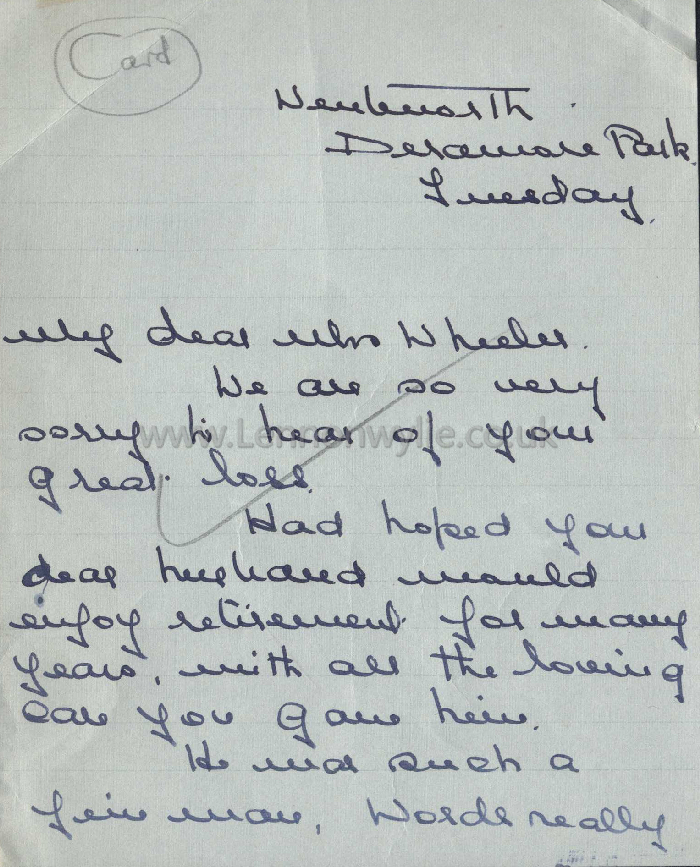 Card
Wentworth
Deramore Park
Tuesday.
My dear Mrs Wheeler.
We are so very
sorry to hear of your
www.Lennonwylie.co.uk
great loss.
Had hoped your
dear husband would
enjoy retirement for many
years, with all the loving
care you gave him.
He was such a
fine man, Words really